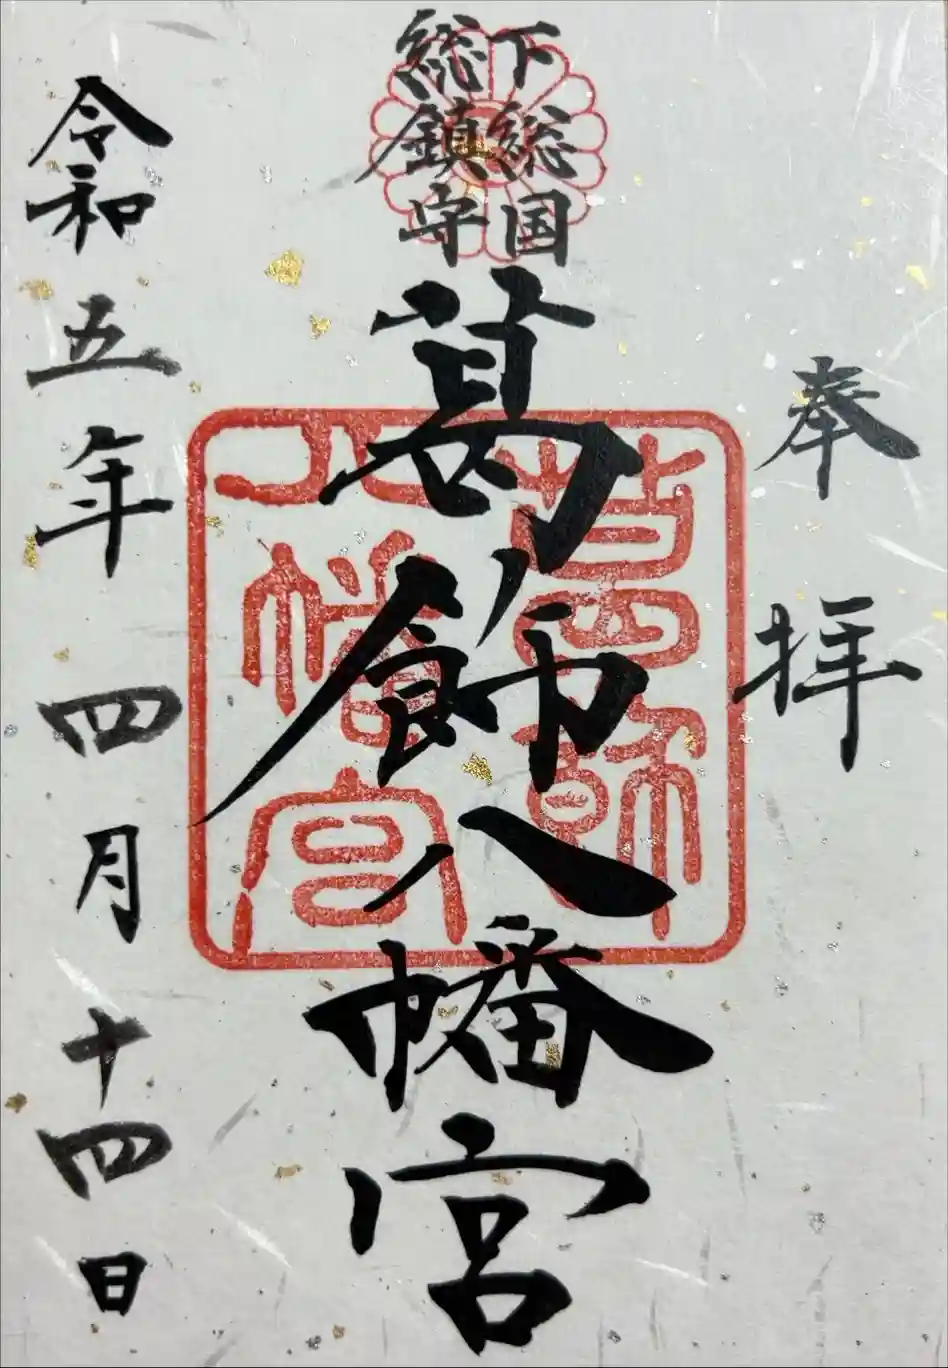 奉拝
下総国
総鎮守
葛飾八幡宮
葛飾
八幡宮
令和五年四月十四日